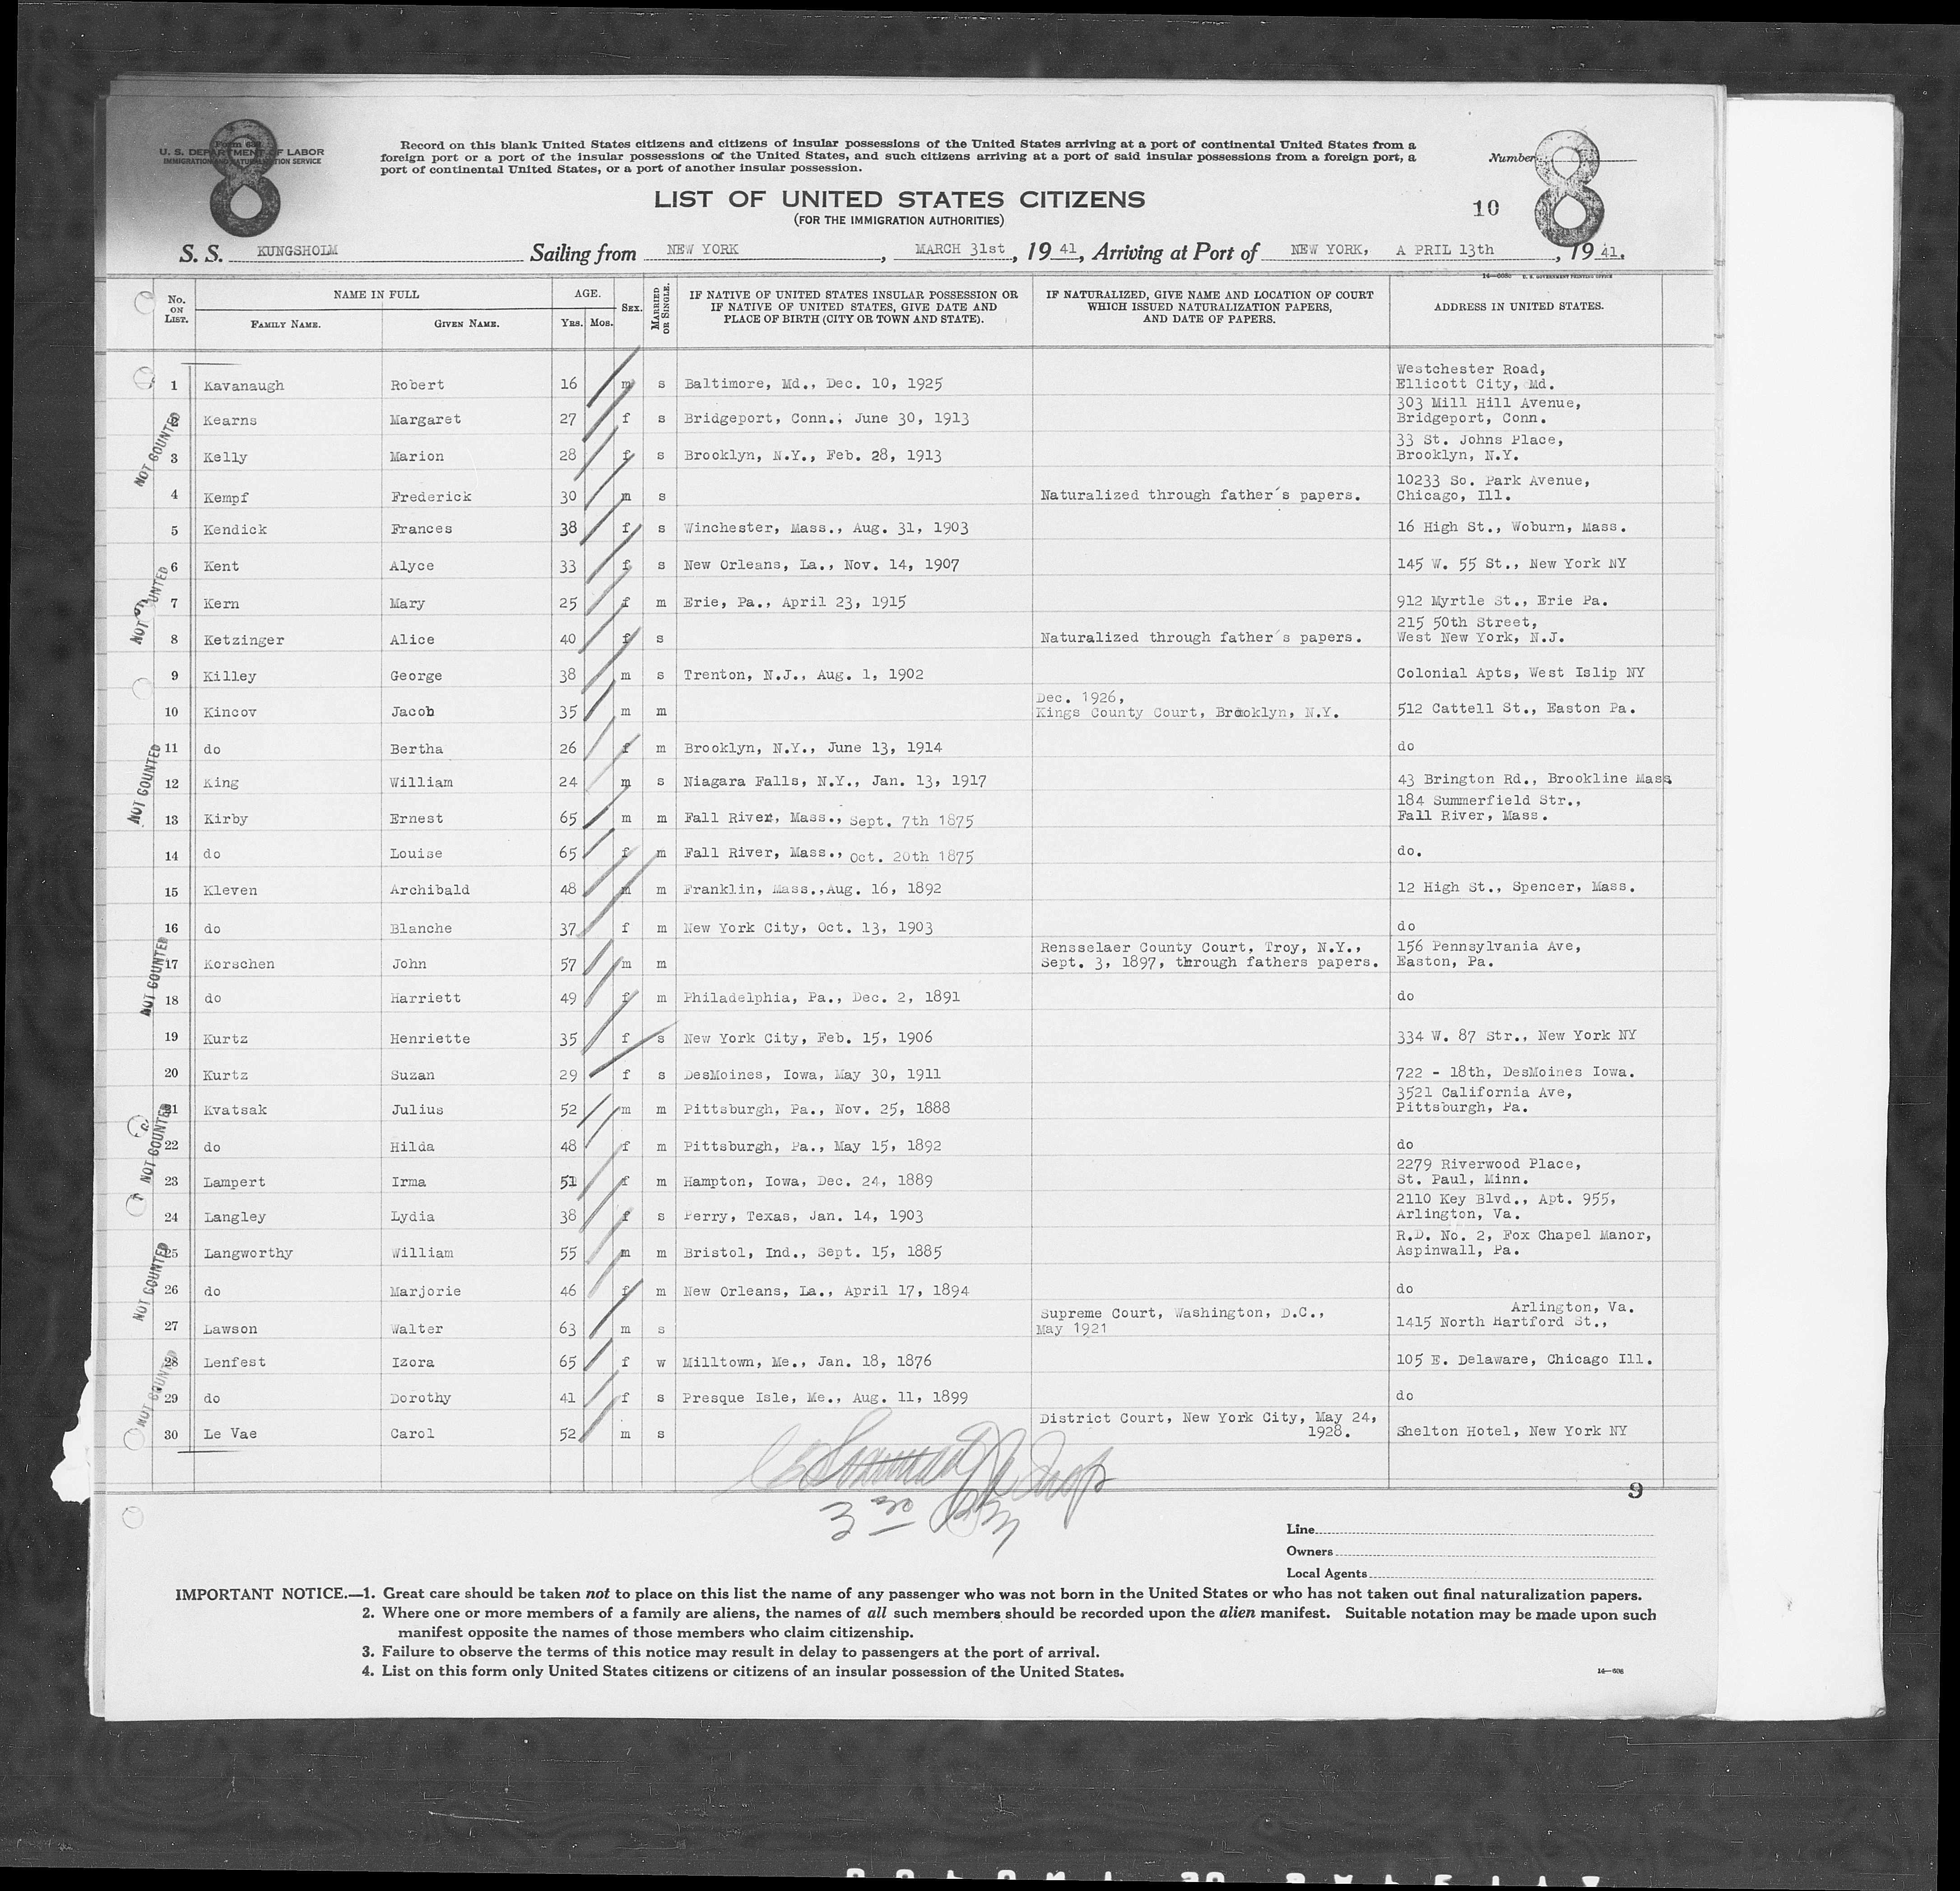 8
Form 630
U. S. DEPARTMENT OF LABOR
IMMIGRATION AND NATURALIZATION SERVICE
Record on this blank United States citizens and citizens of insular possessions of the United States arriving at a port of continental United States from a
foreign port or a port of the insular possessions of the United States, and such citizens arriving at a port of said insular possessions from a foreign port, a
port of continental United States, or a port of another insular possession.
Number
8
LIST OF UNITED STATES CITIZENS
(FOR THE IMMIGRATION AUTHORITIES)
10
S. S. KUNGSHOLM Sailing from NEW YORK, MARCH 31st, 1941, Arriving at Port of NEW YORK, A PRIL 13th, 1941.
No. ON LIST. NAME IN FULL FAMILY NAME. GIVEN NAME. AGE. Yrs. Mos. SEX. MARRIED OR SINGLE. IF NATIVE OF UNITED STATES INSULAR POSSESSION OR IF NATIVE OF UNITED STATES, GIVE DATE AND PLACE OF BIRTH (CITY OR TOWN AND STATE). IF NATURALIZED, GIVE NAME AND LOCATION OF COURT WHICH ISSUED NATURALIZATION PAPERS, AND DATE OF PAPERS. ADDRESS IN UNITED STATES.
1 Kavanaugh Robert 16 m s Baltimore, Md., Dec. 10, 1925 Westchester Road, Ellicott City, Md.
2 Kearns Margaret 27 f s Bridgeport, Conn., June 30, 1913 303 Mill Hill Avenue, Bridgeport, Conn.
3 Kelly Marion 28 f s Brooklyn, N.Y., Feb. 28, 1913 33 St. Johns Place, Brooklyn, N.Y.
4 Kempf Frederick 30 m s Naturalized through father's papers. 10233 So. Park Avenue, Chicago, Ill.
5 Kendick Frances 38 f s Winchester, Mass., Aug. 31, 1903 16 High St., Woburn, Mass.
6 Kent Alyce 33 f s New Orleans, La., Nov. 14, 1907 145 W. 55 St., New York NY
7 Kern Mary 25 f m Erie, Pa., April 23, 1915 912 Myrtle St., Erie Pa.
8 Ketzinger Alice 40 f s Naturalized through father's papers. 215 50th Street, West New York, N.J.
9 Killey George 38 m s Trenton, N.J., Aug. 1, 1902 Colonial Apts, West Islip NY
10 Kincov Jacob 35 m m Dec. 1926, Kings County Court, Brooklyn, N.Y. 512 Cattell St., Easton Pa.
11 do Bertha 26 f m Brooklyn, N.Y., June 13, 1914 do
12 King William 24 m s Niagara Falls, N.Y., Jan. 13, 1917 43 Brington Rd., Brookline Mass.
13 Kirby Ernest 65 m m Fall River, Mass., Sept. 7th 1875 184 Summerfield Str., Fall River, Mass.
14 do Louise 65 f m Fall River, Mass., Oct. 20th 1875 do.
15 Kleven Archibald 48 m m Franklin, Mass.,Aug. 16, 1892 12 High St., Spencer, Mass.
16 do Blanche 37 f m New York City, Oct. 13, 1903 do
17 Korschen John 57 m m Rensselaer County Court, Troy, N.Y., Sept. 3, 1897, through fathers papers. 156 Pennsylvania Ave, Easton, Pa.
18 do Harriett 49 f m Philadelphia, Pa., Dec. 2, 1891 do
19 Kurtz Henriette 35 f s New York City, Feb. 15, 1906 334 W. 87 Str., New York NY
20 Kurtz Suzan 29 f s DesMoines, Iowa, May 30, 1911 722 - 18th, DesMoines Iowa.
21 Kvatsak Julius 52 m m Pittsburgh, Pa., Nov. 25, 1888 3521 California Ave, Pittsburgh, Pa.
22 do Hilda 48 f m Pittsburgh, Pa., May 15, 1892 do
23 Lampert Irma 51 f m Hampton, Iowa, Dec. 24, 1889 2279 Riverwood Place, St. Paul, Minn.
24 Langley Lydia 38 f s Perry, Texas, Jan. 14, 1903 2110 Key Blvd., Apt. 955, Arlington, Va.
25 Langworthy William 55 m m Bristol, Ind., Sept. 15, 1885 R.D. No. 2, Fox Chapel Manor, Aspinwall, Pa.
26 do Marjorie 46 f m New Orleans, La., April 17, 1894 do
27 Lawson Walter 63 m s Supreme Court, Washington, D.C., May 1921 Arlington, Va. 1415 North Hartford St.,
28 Lenfest Izora 65 f w Milltown, Me., Jan. 18, 1876 105 E. Delaware, Chicago Ill.
29 do Dorothy 41 f s Presque Isle, Me., Aug. 11, 1899 do
30 Le Vae Carol 52 m s District Court, New York City, May 24, 1928. Shelton Hotel, New York NY
NOT COUNTED
NOT COUNTED
NOT COUNTED
NOT COUNTED
NOT COUNTED
NOT COUNTED
NOT COUNTED
9
Line
Owners
Local Agents
IMPORTANT NOTICE.—1. Great care should be taken not to place on this list the name of any passenger who was not born in the United States or who has not taken out final naturalization papers.
2. Where one or more members of a family are aliens, the names of all such members should be recorded upon the alien manifest. Suitable notation may be made upon such
manifest opposite the names of those members who claim citizenship.
3. Failure to observe the terms of this notice may result in delay to passengers at the port of arrival.
4. List on this form only United States citizens or citizens of an insular possession of the United States.
14—606